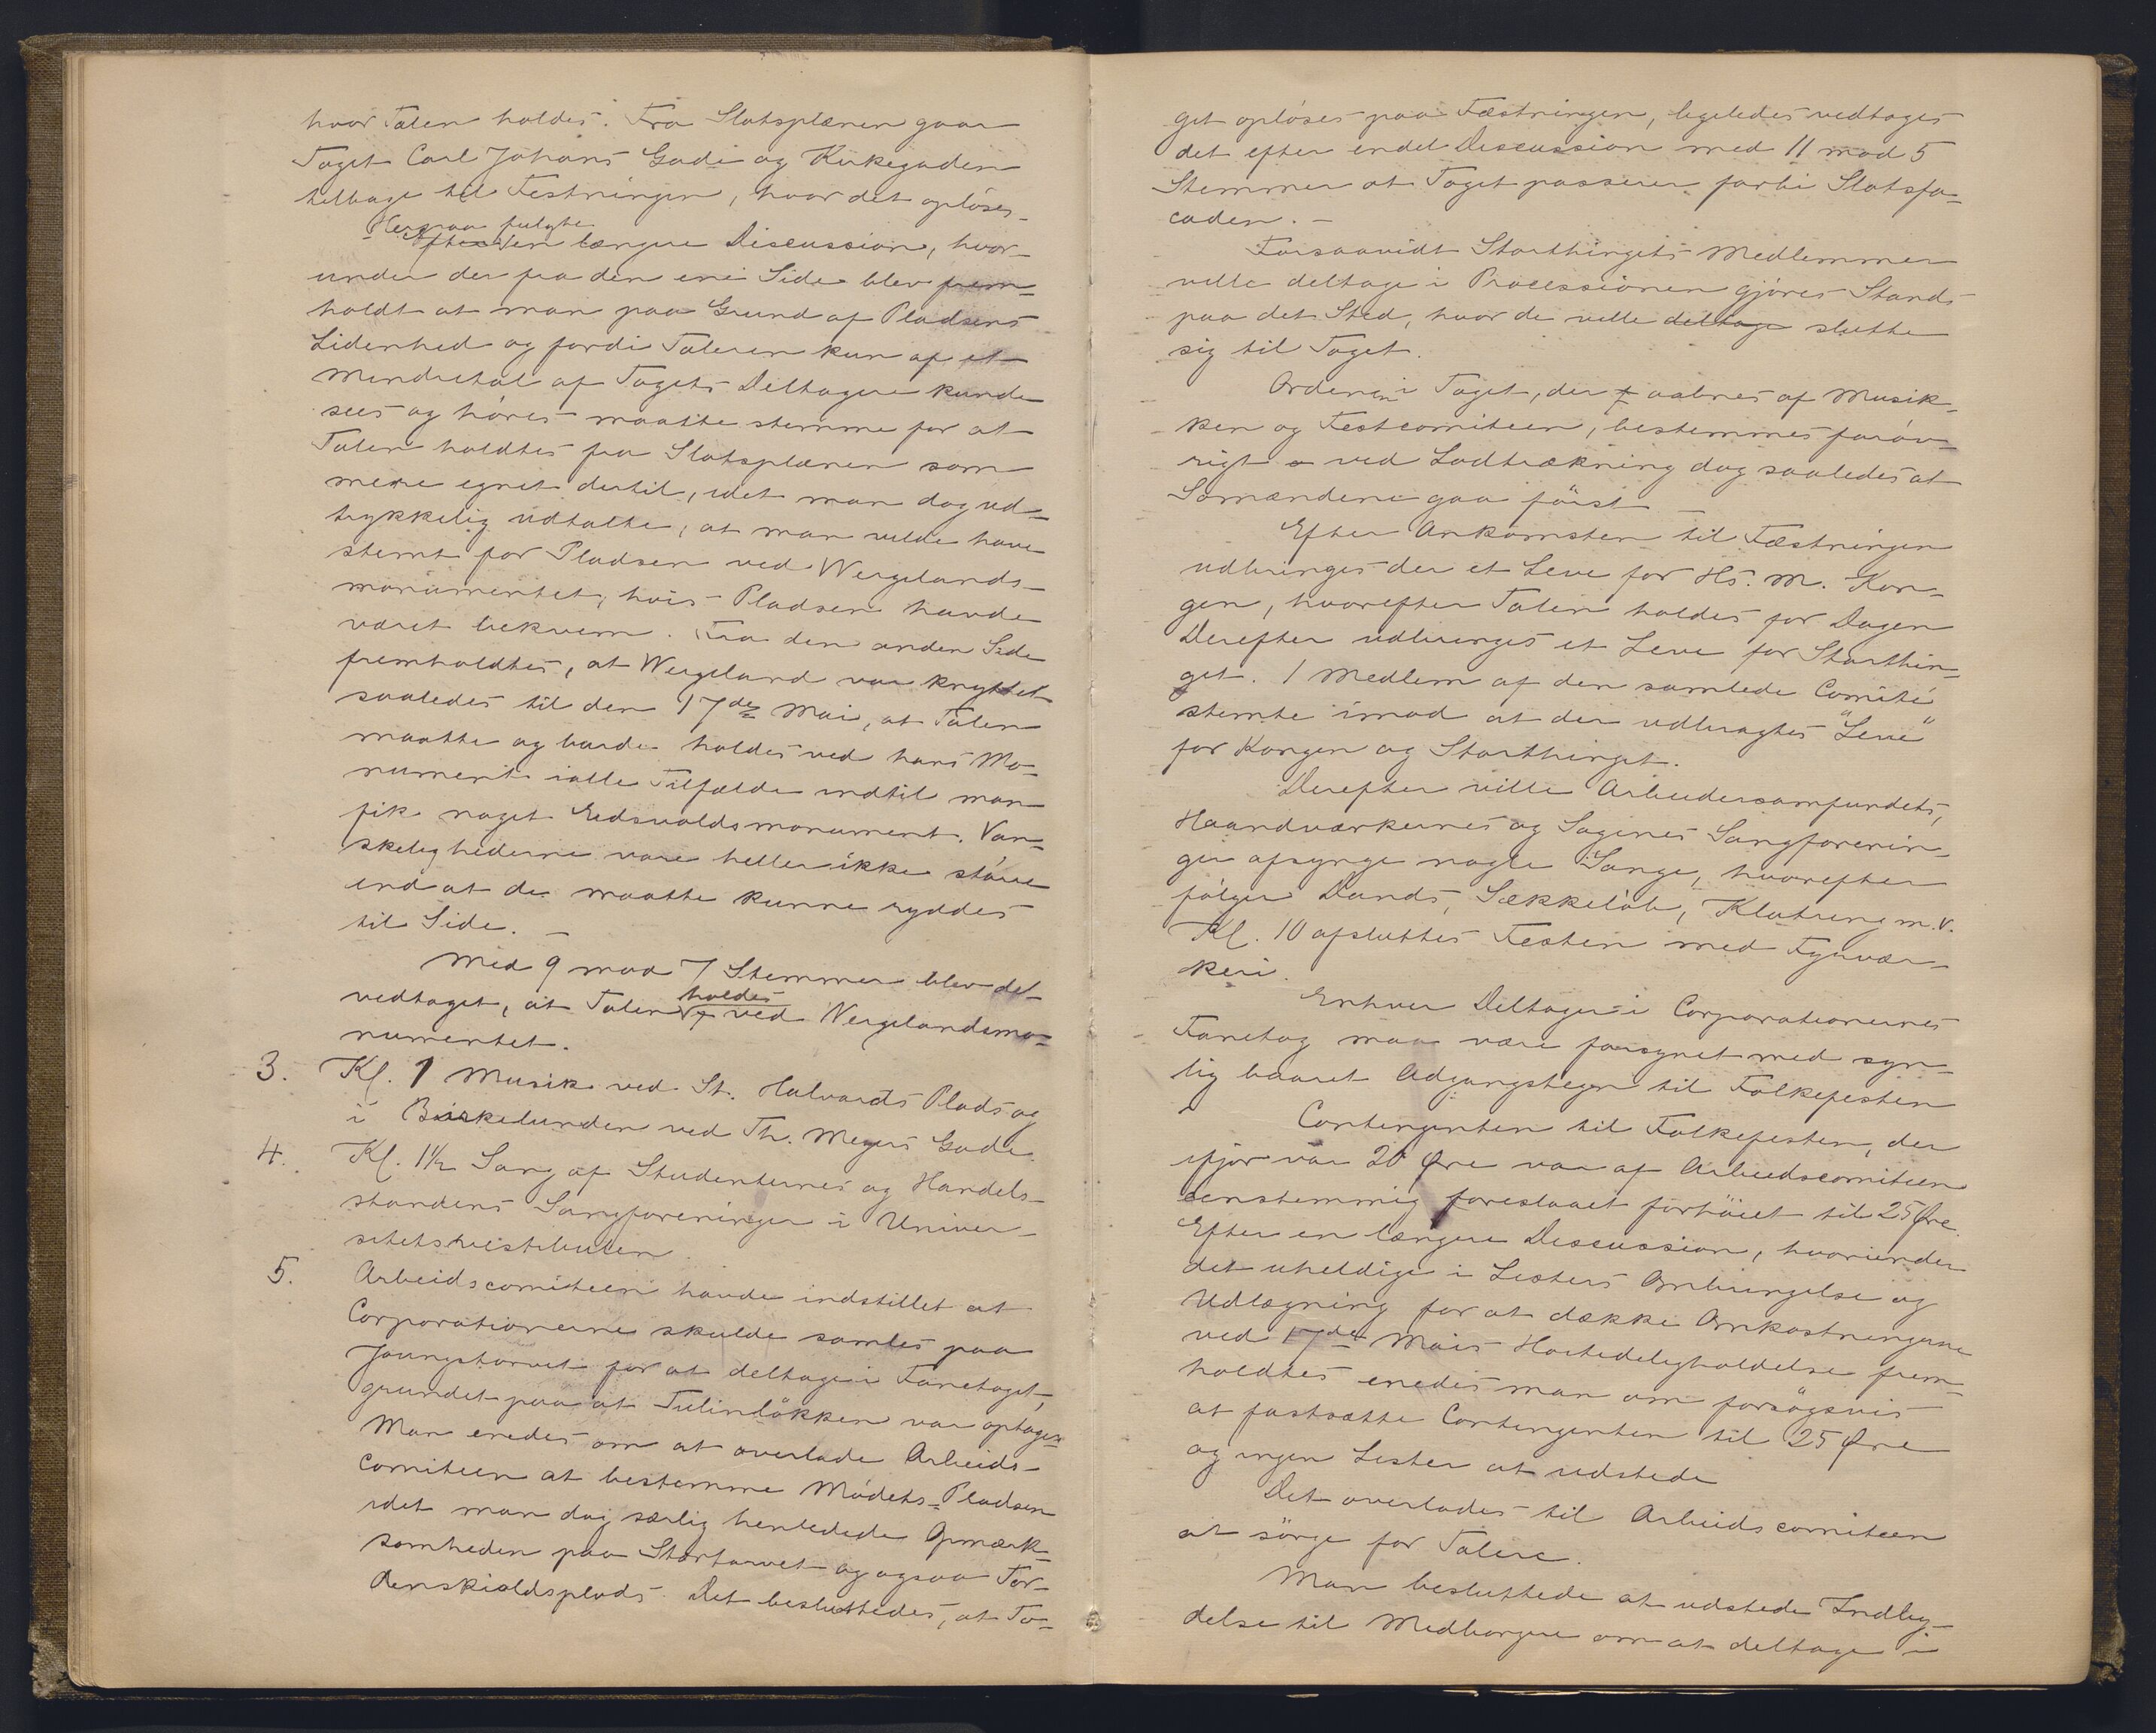 hvor Talen holdes. Fra Slotsplænen gaar
Toget Carl Johans Gade og Kirkegaden
tilbage til Festningen, hvor det opløses.
Herpaa fulgte
Efter en længere Discussion, hvor-
under der fra den ene Side blev frem-
holdt at man paa Grund af Pladsens
Lidenhed og fordi Taleren kun af et
Mindretal af Togets Deltagere kunde
sees og høres maatte stemme for at
Talen holdtes fra Slotsplænen som
mere egnet dertil, idet man dog ud-
trykkelig udtalte, at man vilde have
stemt for Pladsen ved Wergelands-
monumentet, hvis Pladsen havde
været bekvem. Fra den anden Side
fremholdtes, at Wergeland var knyttet
saaledes til den 17de Mai, at Talen
maatte og burde holdes ved hans Mo-
nument ialle Tilfælde indtil man
fik noget Eidsvoldsmonument. Van-
skelighederne vare heller ikke større
end at de maatte kunne ryddes
til Side. —
Med 9 mod 7 Stemmer blev det
holdes
vedtaget, at Talen ved Wergelandsmo-
numentet.
3. Kl. 1 Musik ved St. Halvards Plads og
i Birkelunden ved Th. Meyers Gade.
4. Kl. 1½ Sang af Studenternes og Handels-
standens Sangforeninger i Univer-
sitetsvestibulen.
5. Arbeidscomiteen havde indstillet at
Corporationerne skulde samles paa
Youngstorvet for at deltage i Fanetoget,
grundet paa at Tulinløkken var optagen
Man enedes om at overlade Arbeids-
comiteen at bestemme Mødets-Pladsen
idet man dog særlig henledede Opmærk-
somheden paa Stortorvet og ogsaa Tor-
denskioldsplads. Det besluttedes, at To-
get opløses paa Fæstningen, ligeledes vedtoges
det efter endel Discussion med 11 mod 5
Stemmer at Toget passerer forbi Slotsfa-
caden. —
Forsaavidt Storthingets Medlemmer
ville deltage i Processionen gjøres Stands
paa det Sted, hvor de ville deltage slutte
sig til Toget.
Ordenen i Toget, der aabnes af Musik-
ken og Festcomiteen, bestemmes forøv-
rigt ved Lodtrækning dog saaledes at
Sømændene gaa først —
Efter Ankomsten til Fæstningen
udbringes der et Leve for Hs. M. Kon-
gen, hvorefter Talen holdes for Dagen
Derefter udbringes et Leve for Storthin-
get. 1 Medlem af den samlede Comité
stemte imod at der udbragtes "Leve"
for Kongen og Storthinget.
Derefter ville Arbeidersamfundets,
Haandværkernes og Sagenes Sangforenin-
ger afsynge nogle Sange, hvorefter
følger Dands, Sækkeløb, Klatring m.v.
Kl. 10 afsluttes Festen med Fyrvær-
keri.
Enhver Deltager i Corporationernes
Fanetog maa være forsynet med syn-
lig baaret Adgangstegn til Folkefesten
Contingenten til Folkefesten, der
ifjor var 20 Øre var af Arbeidscomiteen
eenstemmig foreslaaet forhøiet til 25 Øre.
Efter en længere Discussion, hvorunder
det uheldige i Listers Ombringelse og
Udlægning for at dække Omkostningerne
ved 17de Mais Høitideligholdelse frem-
holdtes enedes man om forsøgsvis
at fastsætte Contingenten til 25 Øre
og ingen Lister at udstede
Det overlodes til Arbeidscomiteen
at sørge for Talere.
Man besluttede at udstede Indby-
delse til Medborgere om at deltage i